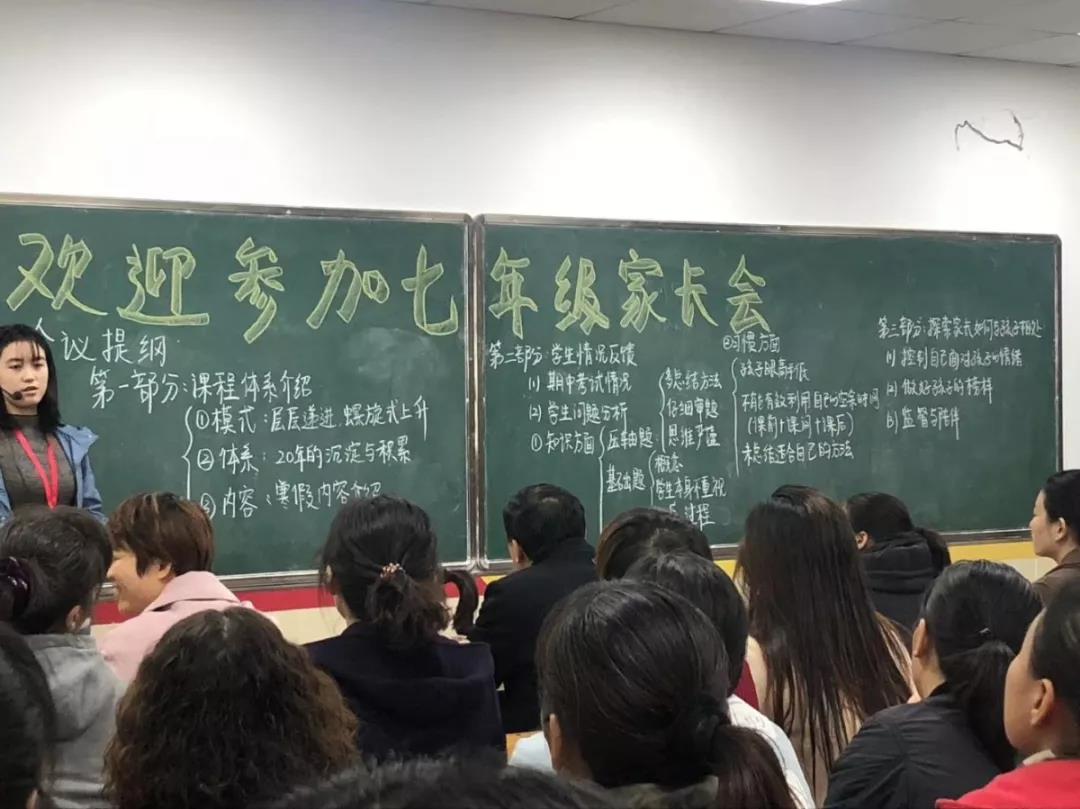 欢迎参加七年级家长会
会议提纲
第一部分:课程体系介绍
①模式:层层递进 螺旋式上升
②体系:20年的沉淀与积累
③内容:寒假内容介绍
第二部分:学生情况反馈
(1)期中考试情况
(2)学生问题分析
①知识方面
压轴题
多总结方法
仔细审题
思维严谨
基础题
概念
学生本身不重视
过程
②习惯方面
孩子眼高手低
不能有效利用自己的空余时间
(课前+课间+课后)
未总结适合自己的方法
第三部分:探索家长如何与孩子相处
(1)控制自己面对孩子的情绪
(2)做好孩子的榜样
(3)监督与陪伴